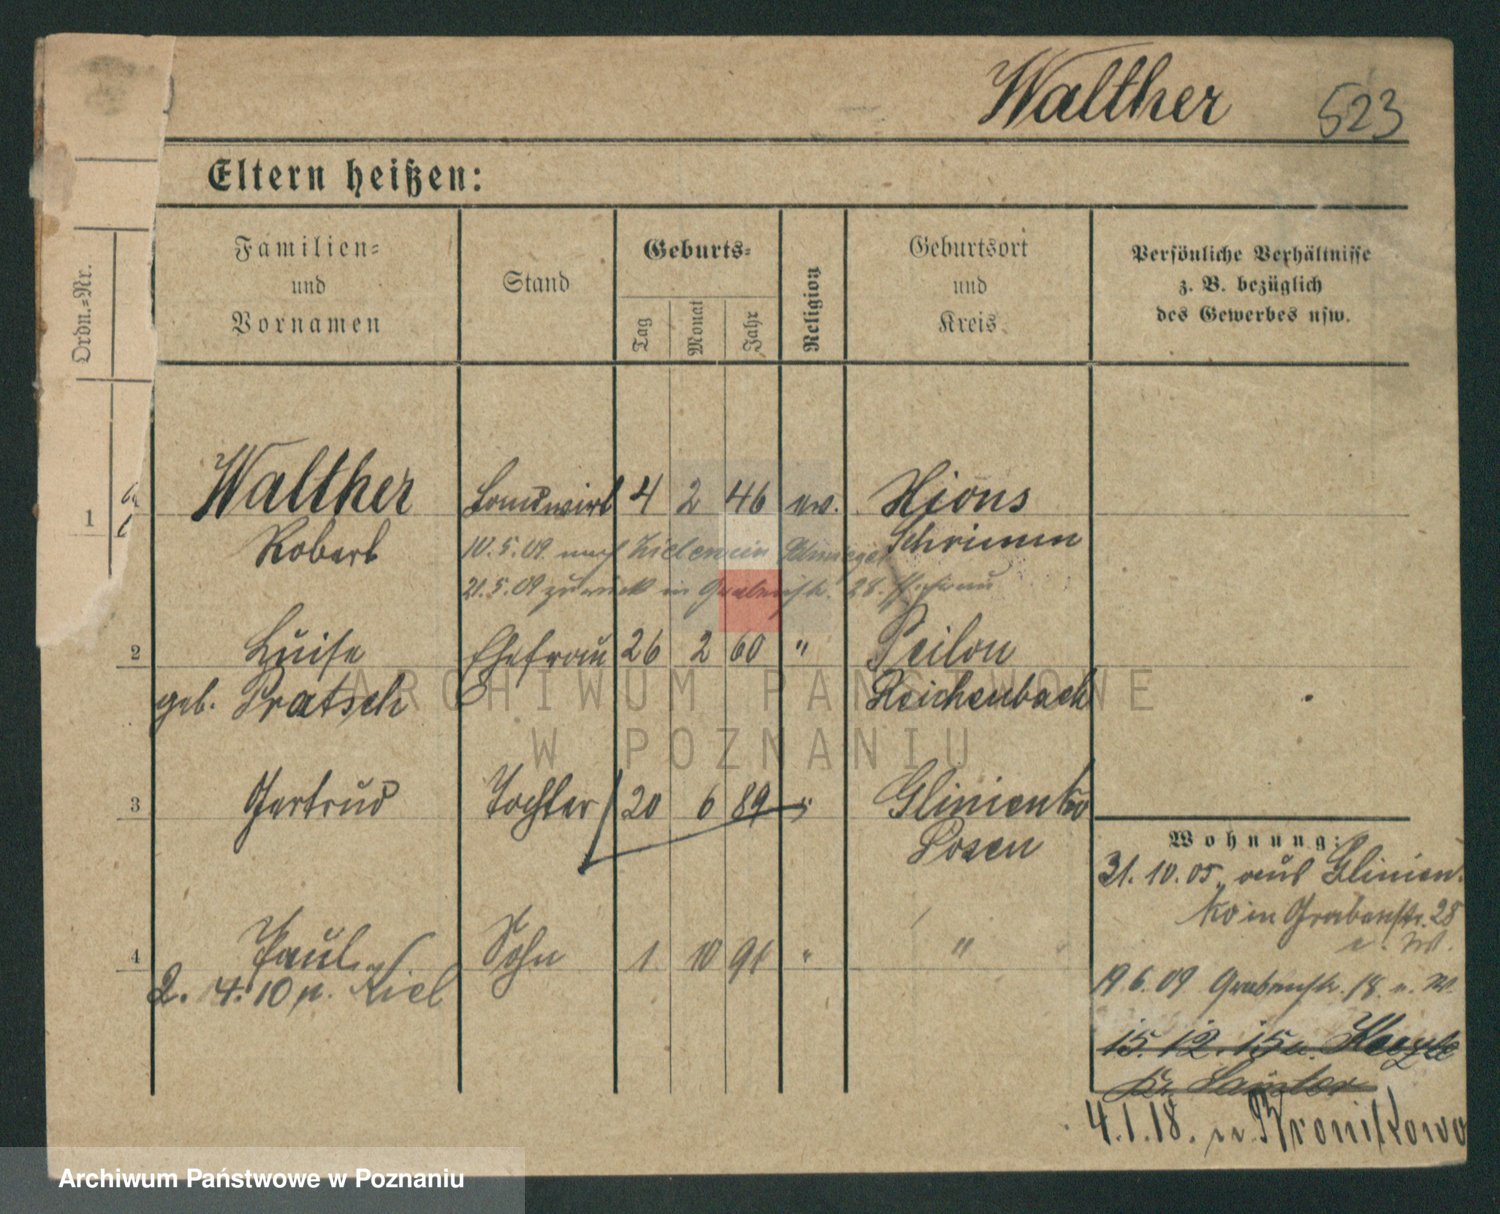 Walther 523
Eltern heißen:
Ordn.-Nr.
Familien- und Vornamen
Stand
Geburts-
Tag
Monat
Jahr
Religion
Geburtsort und Kreis
Persönliche Verhältnisse z. B. bezüglich des Gewerbes usw.
1 Walther Landwirt 4 2 46 ev. Xions
Robert Schrimm
10.5.09 nach
21.5.09 zurück in Grabenstr. 28.
2 Luise Ehefrau 26 2 60 " Peilau
geb. Pratsch Reichenbach
3 Gertrud Tochter 20 6 89 " Glinienko
Posen
4 Paul Sohn 1 10 91 " "
2. 4. 10 n. Kiel
Wohnung:
31. 10. 05. aus Glinien-
ko in Grabenstr. 28
19.6.09 Grabenstr. 18.
15. 12. 15 n.
Kr. Samter
4.1.18. n. Bronikowo
ARCHIWUM PAŃSTWOWE
W POZNANIU
Archiwum Państwowe w Poznaniu